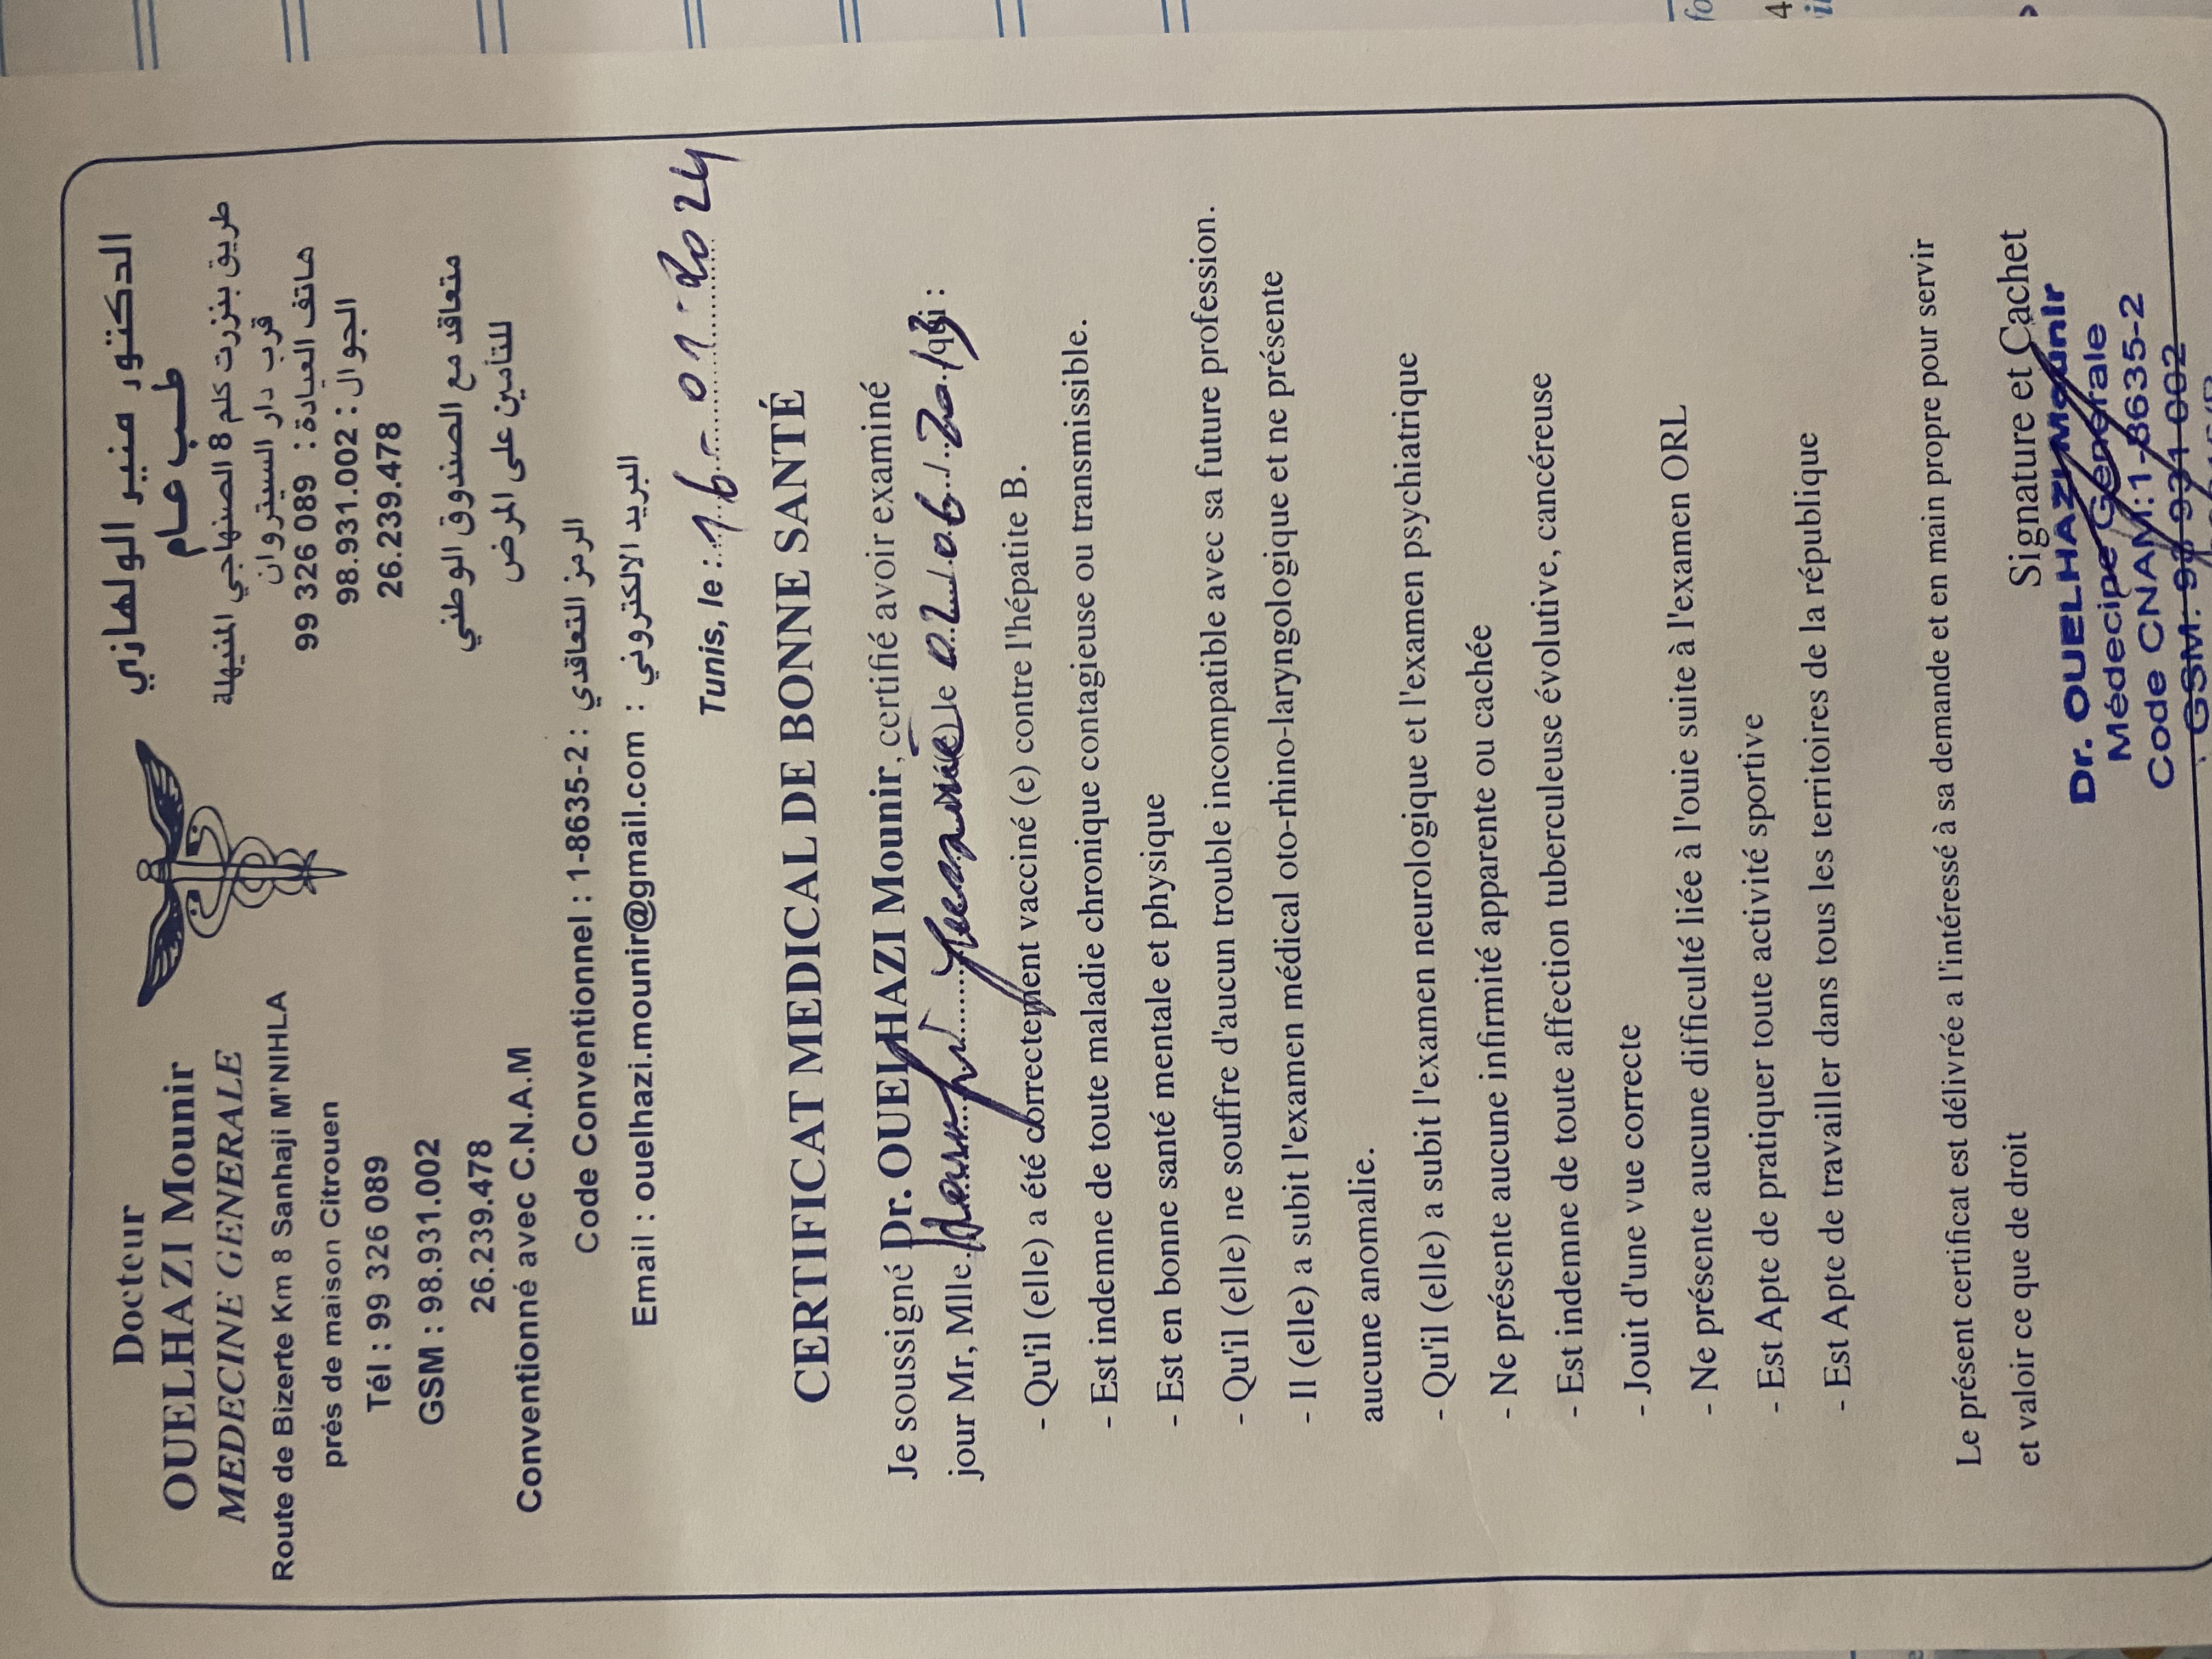 Docteur
OUELHAZI Mounir
MEDECINE GENERALE
Route de Bizerte Km 8 Sanhaji M'NIHLA
prés de maison Citrouen
Tél : 99 326 089
GSM : 98.931.002
26.239.478
Conventionné avec C.N.A.M
الدكتور منير الولهازي
طب عام
طريق بنزرت كلم 8 الصنهاجي المنيهلة
قرب دار السيتروان
هاتف العيادة : 99 326 089
الجوال : 98.931.002
26.239.478
متعاقد مع الصندوق الوطني
للتأمين على المرض
Code Conventionnel : 1-8635-2 : الرمز التعاقدي
Email : ouelhazi.mounir@gmail.com : البريد الالكتروني
Tunis, le : 16-01-2024
CERTIFICAT MEDICAL DE BONNE SANTÉ
Je soussigné Dr. OUELHAZI Mounir, certifié avoir examiné
jour Mr, Mlle le 02/06/20
- Qu'il (elle) a été correctement vacciné (e) contre l'hépatite B.
- Est indemne de toute maladie chronique contagieuse ou transmissible.
- Est en bonne santé mentale et physique
- Qu'il (elle) ne souffre d'aucun trouble incompatible avec sa future profession.
- Il (elle) a subit l'examen médical oto-rhino-laryngologique et ne présente
aucune anomalie.
- Qu'il (elle) a subit l'examen neurologique et l'examen psychiatrique
- Ne présente aucune infirmité apparente ou cachée
- Est indemne de toute affection tuberculeuse évolutive, cancéreuse
- Jouit d'une vue correcte
- Ne présente aucune difficulté liée à l'ouie suite à l'examen ORL
- Est Apte de pratiquer toute activité sportive
- Est Apte de travailler dans tous les territoires de la république
Le présent certificat est délivrée a l'intéressé à sa demande et en main propre pour servir
et valoir ce que de droit
Signature et Cachet
Dr. OUELHAZI Mounir
Médecine Générale
Code CNAM:1-8635-2
GSM: 98 931 002